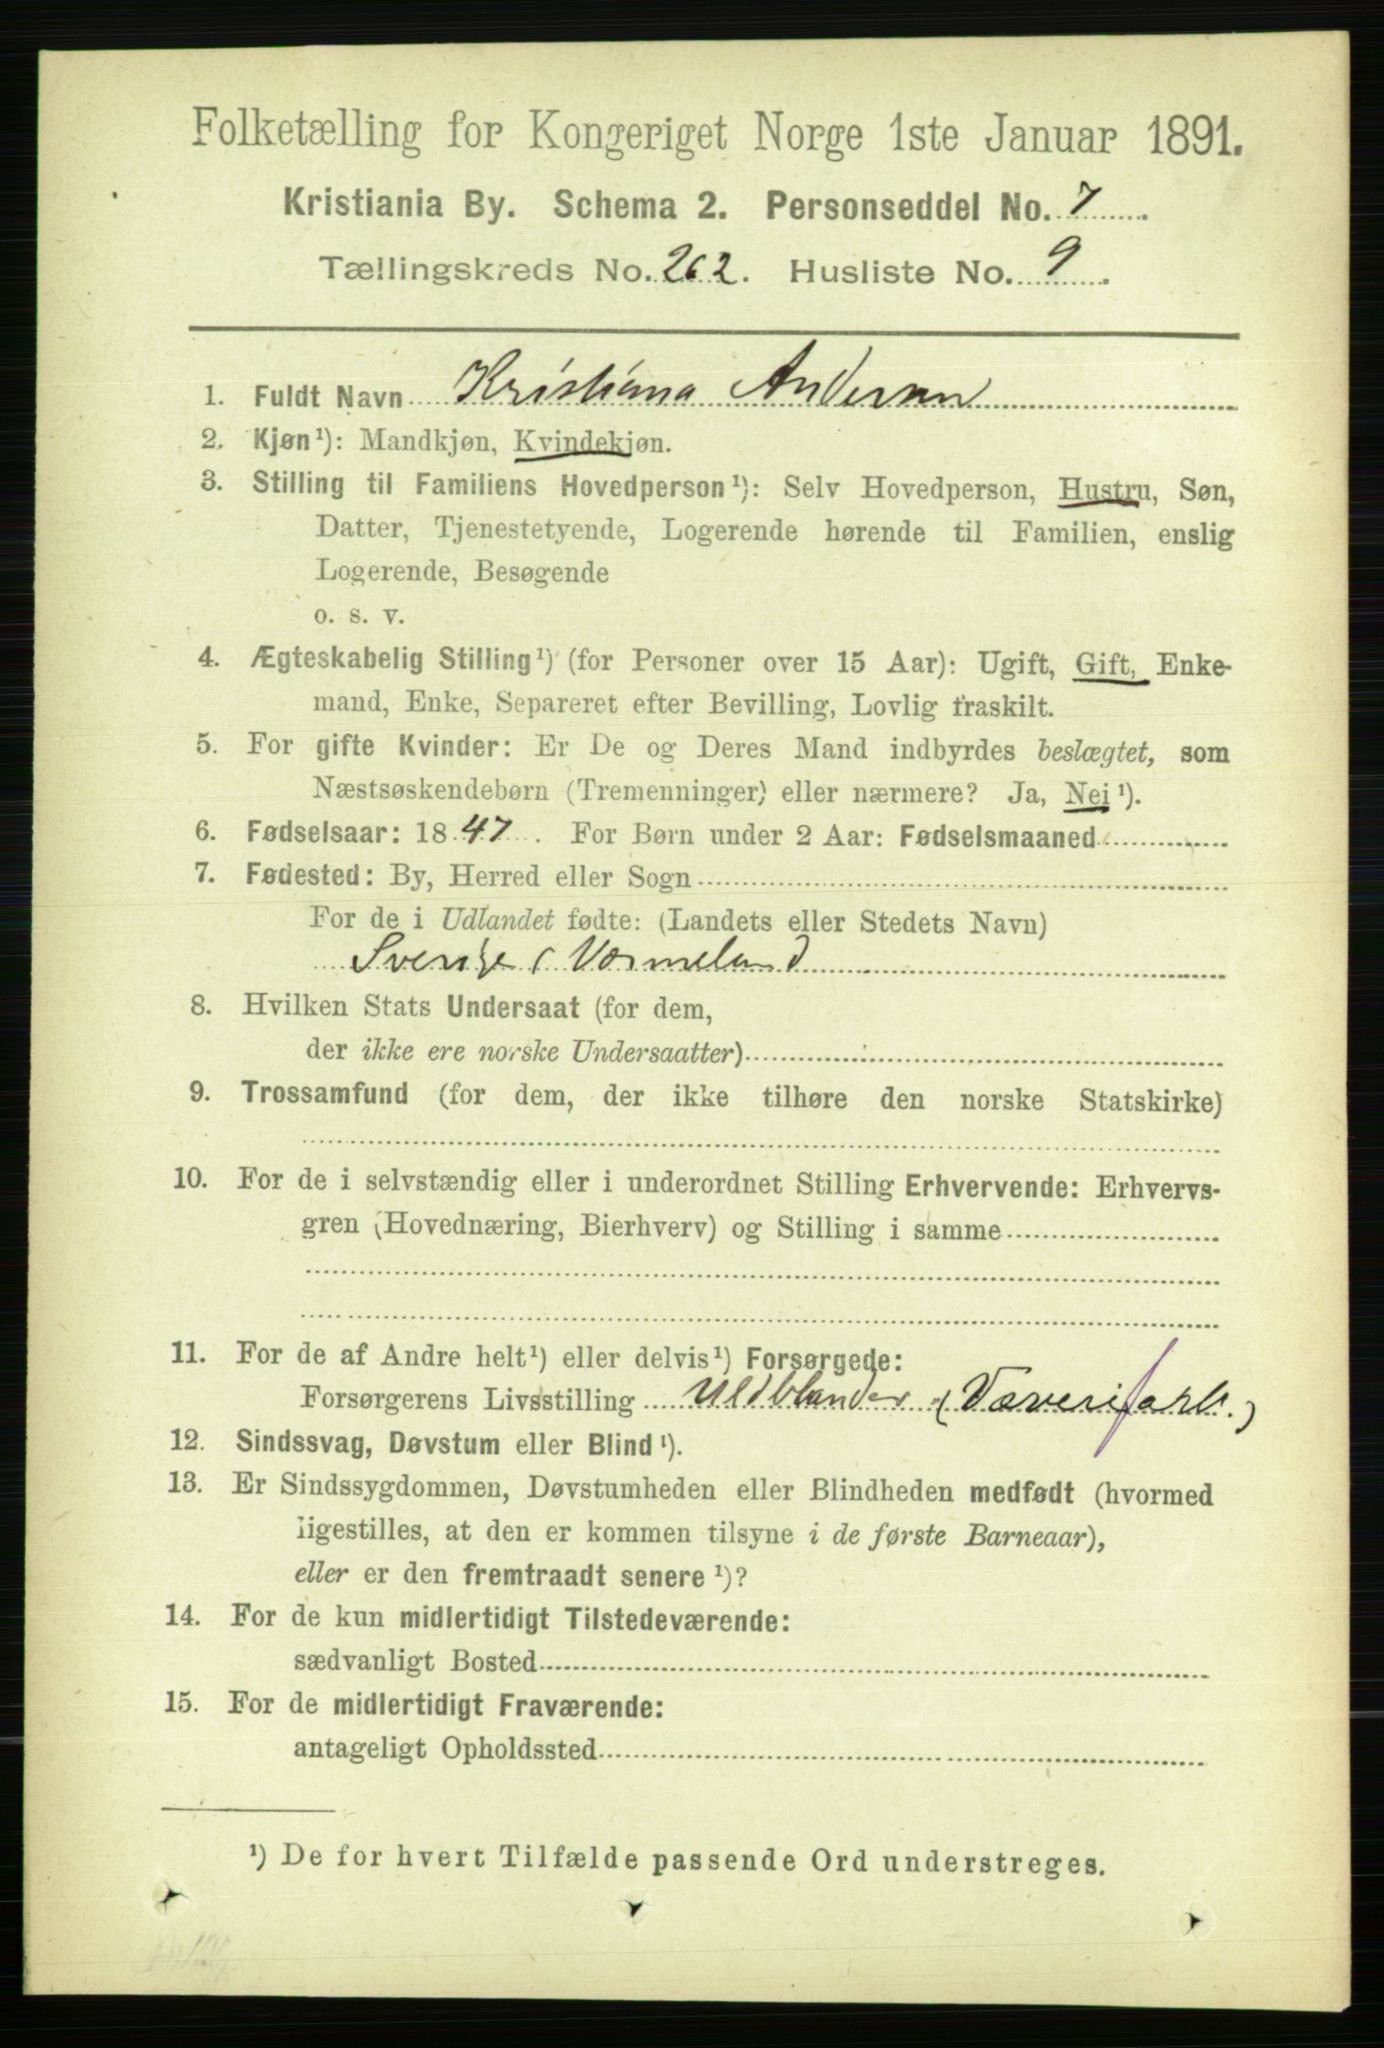 Folketælling for Kongeriget Norge 1ste Januar 1891.
Kristiania By. Schema 2. Personseddel No. 7
Tællingskreds No. 262. Husliste No. 9.
1. Fuldt Navn Kristiana Andersen
2. Kjøn¹): Mandkjøn, Kvindekjøn.
3. Stilling til Familiens Hovedperson¹): Selv Hovedperson, Hustru, Søn,
Datter, Tjenestetyende, Logerende hørende til Familien, enslig
Logerende, Besøgende
o. s. v.
4. Ægteskabelig Stilling¹) (for Personer over 15 Aar): Ugift, Gift, Enke-
mand, Enke, Separeret efter Bevilling, Lovlig fraskilt.
5. For gifte Kvinder: Er De og Deres Mand indbyrdes beslægtet, som
Næstsøskendebørn (Tremenninger) eller nærmere? Ja, Nei¹).
6. Fødselsaar: 1847. For Børn under 2 Aar: Fødselsmaaned
7. Fødested: By, Herred eller Sogn
For de i Udlandet fødte: (Landets eller Stedets Navn)
Sverige ( Værmeland
8. Hvilken Stats Undersaat (for dem,
der ikke ere norske Undersaatter)
9. Trossamfund (for dem, der ikke tilhøre den norske Statskirke)
10. For de i selvstændig eller i underordnet Stilling Erhvervende: Erhvervs-
gren (Hovednæring, Bierhverv) og Stilling i samme
11. For de af Andre helt¹) eller delvis¹) Forsørgede:
Forsørgerens Livsstilling Uldblander (Væverifabr.)
12. Sindssvag, Døvstum eller Blind¹).
13. Er Sindssygdommen, Døvstumheden eller Blindheden medfødt (hvormed
ligestilles, at den er kommen tilsyne i de første Barneaar),
eller er den fremtraadt senere¹)?
14. For de kun midlertidigt Tilstedeværende:
sædvanligt Bosted
15. For de midlertidigt Fraværende:
antageligt Opholdssted
¹) De for hvert Tilfælde passende Ord understreges.